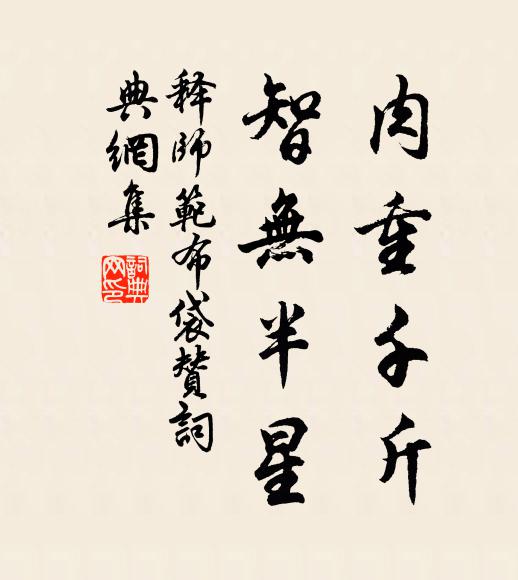 肉重千斤
智無半星
释師範布袋贊詞
典網集
詞典網印